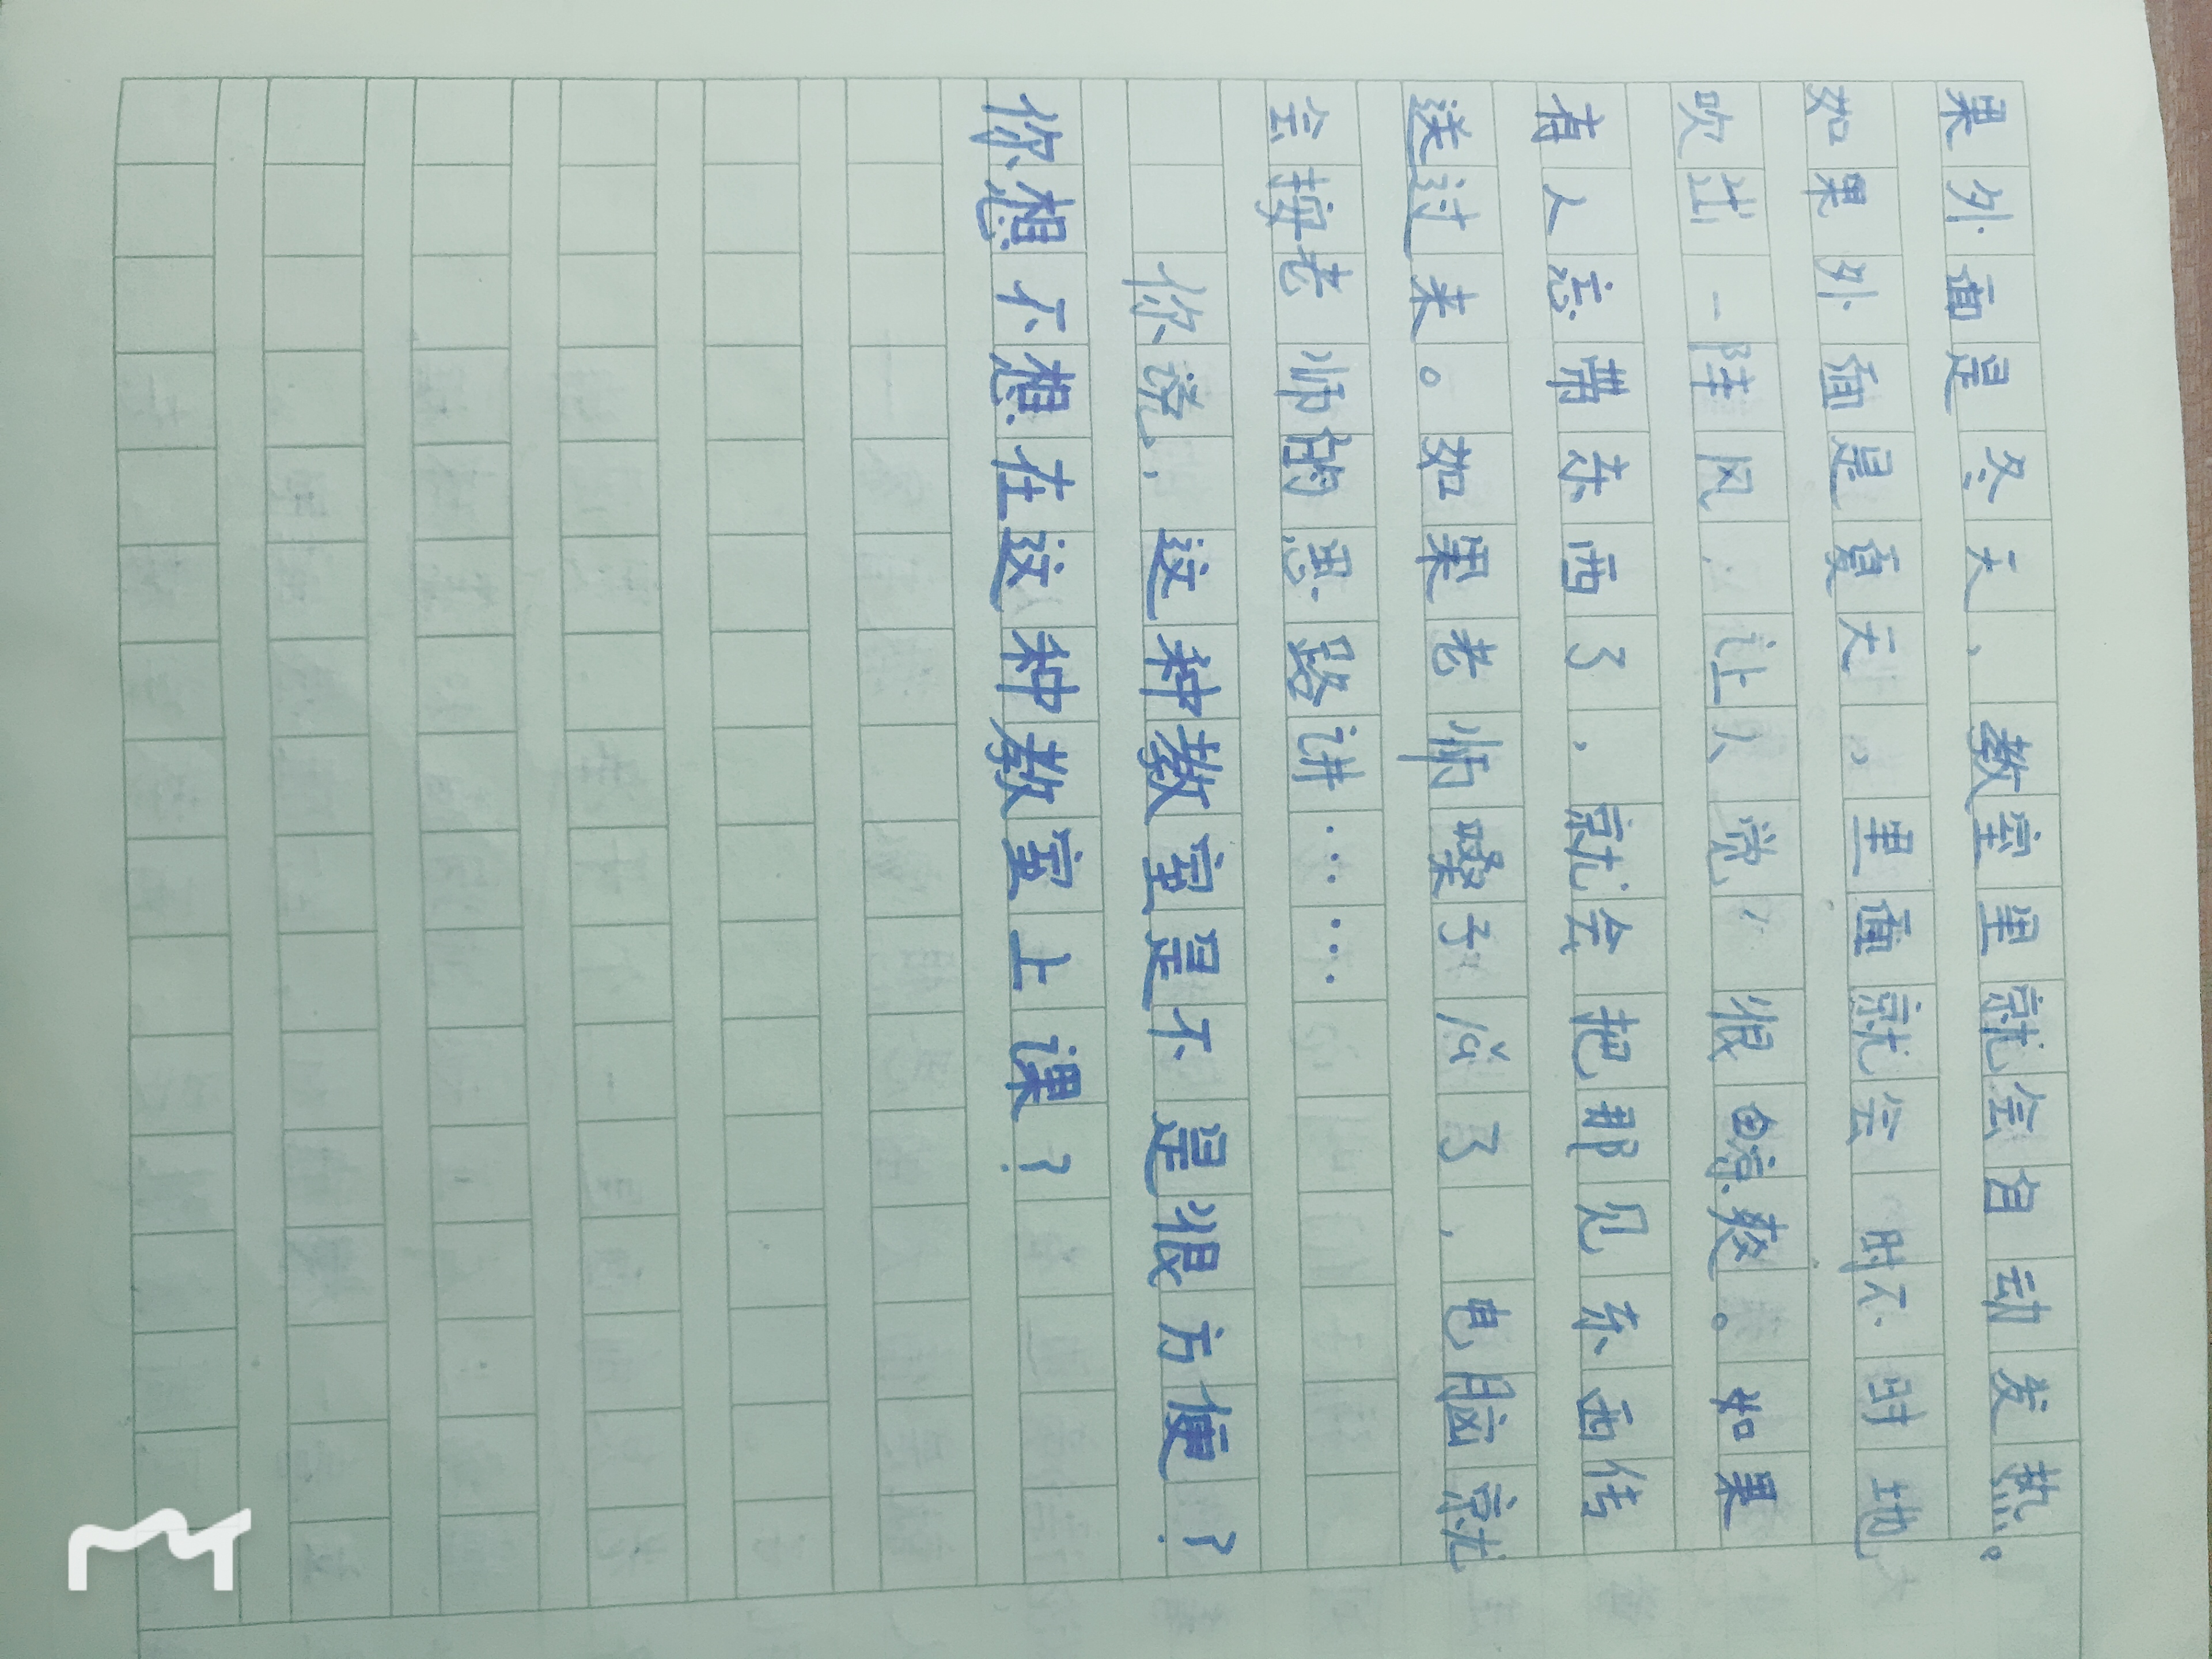 果外面是冬天，教室里就会自动发热。
如果外面是夏天，里面就会时不时地
吹出一阵风，让人觉很凉爽。如果
有人忘带东西了，就会把那见东西传
送过来。如果老师嗓子哑了，电脑就
会按老师的思路讲……
你说，这种教室是不是很方便？
你想不想在这种教室上课？